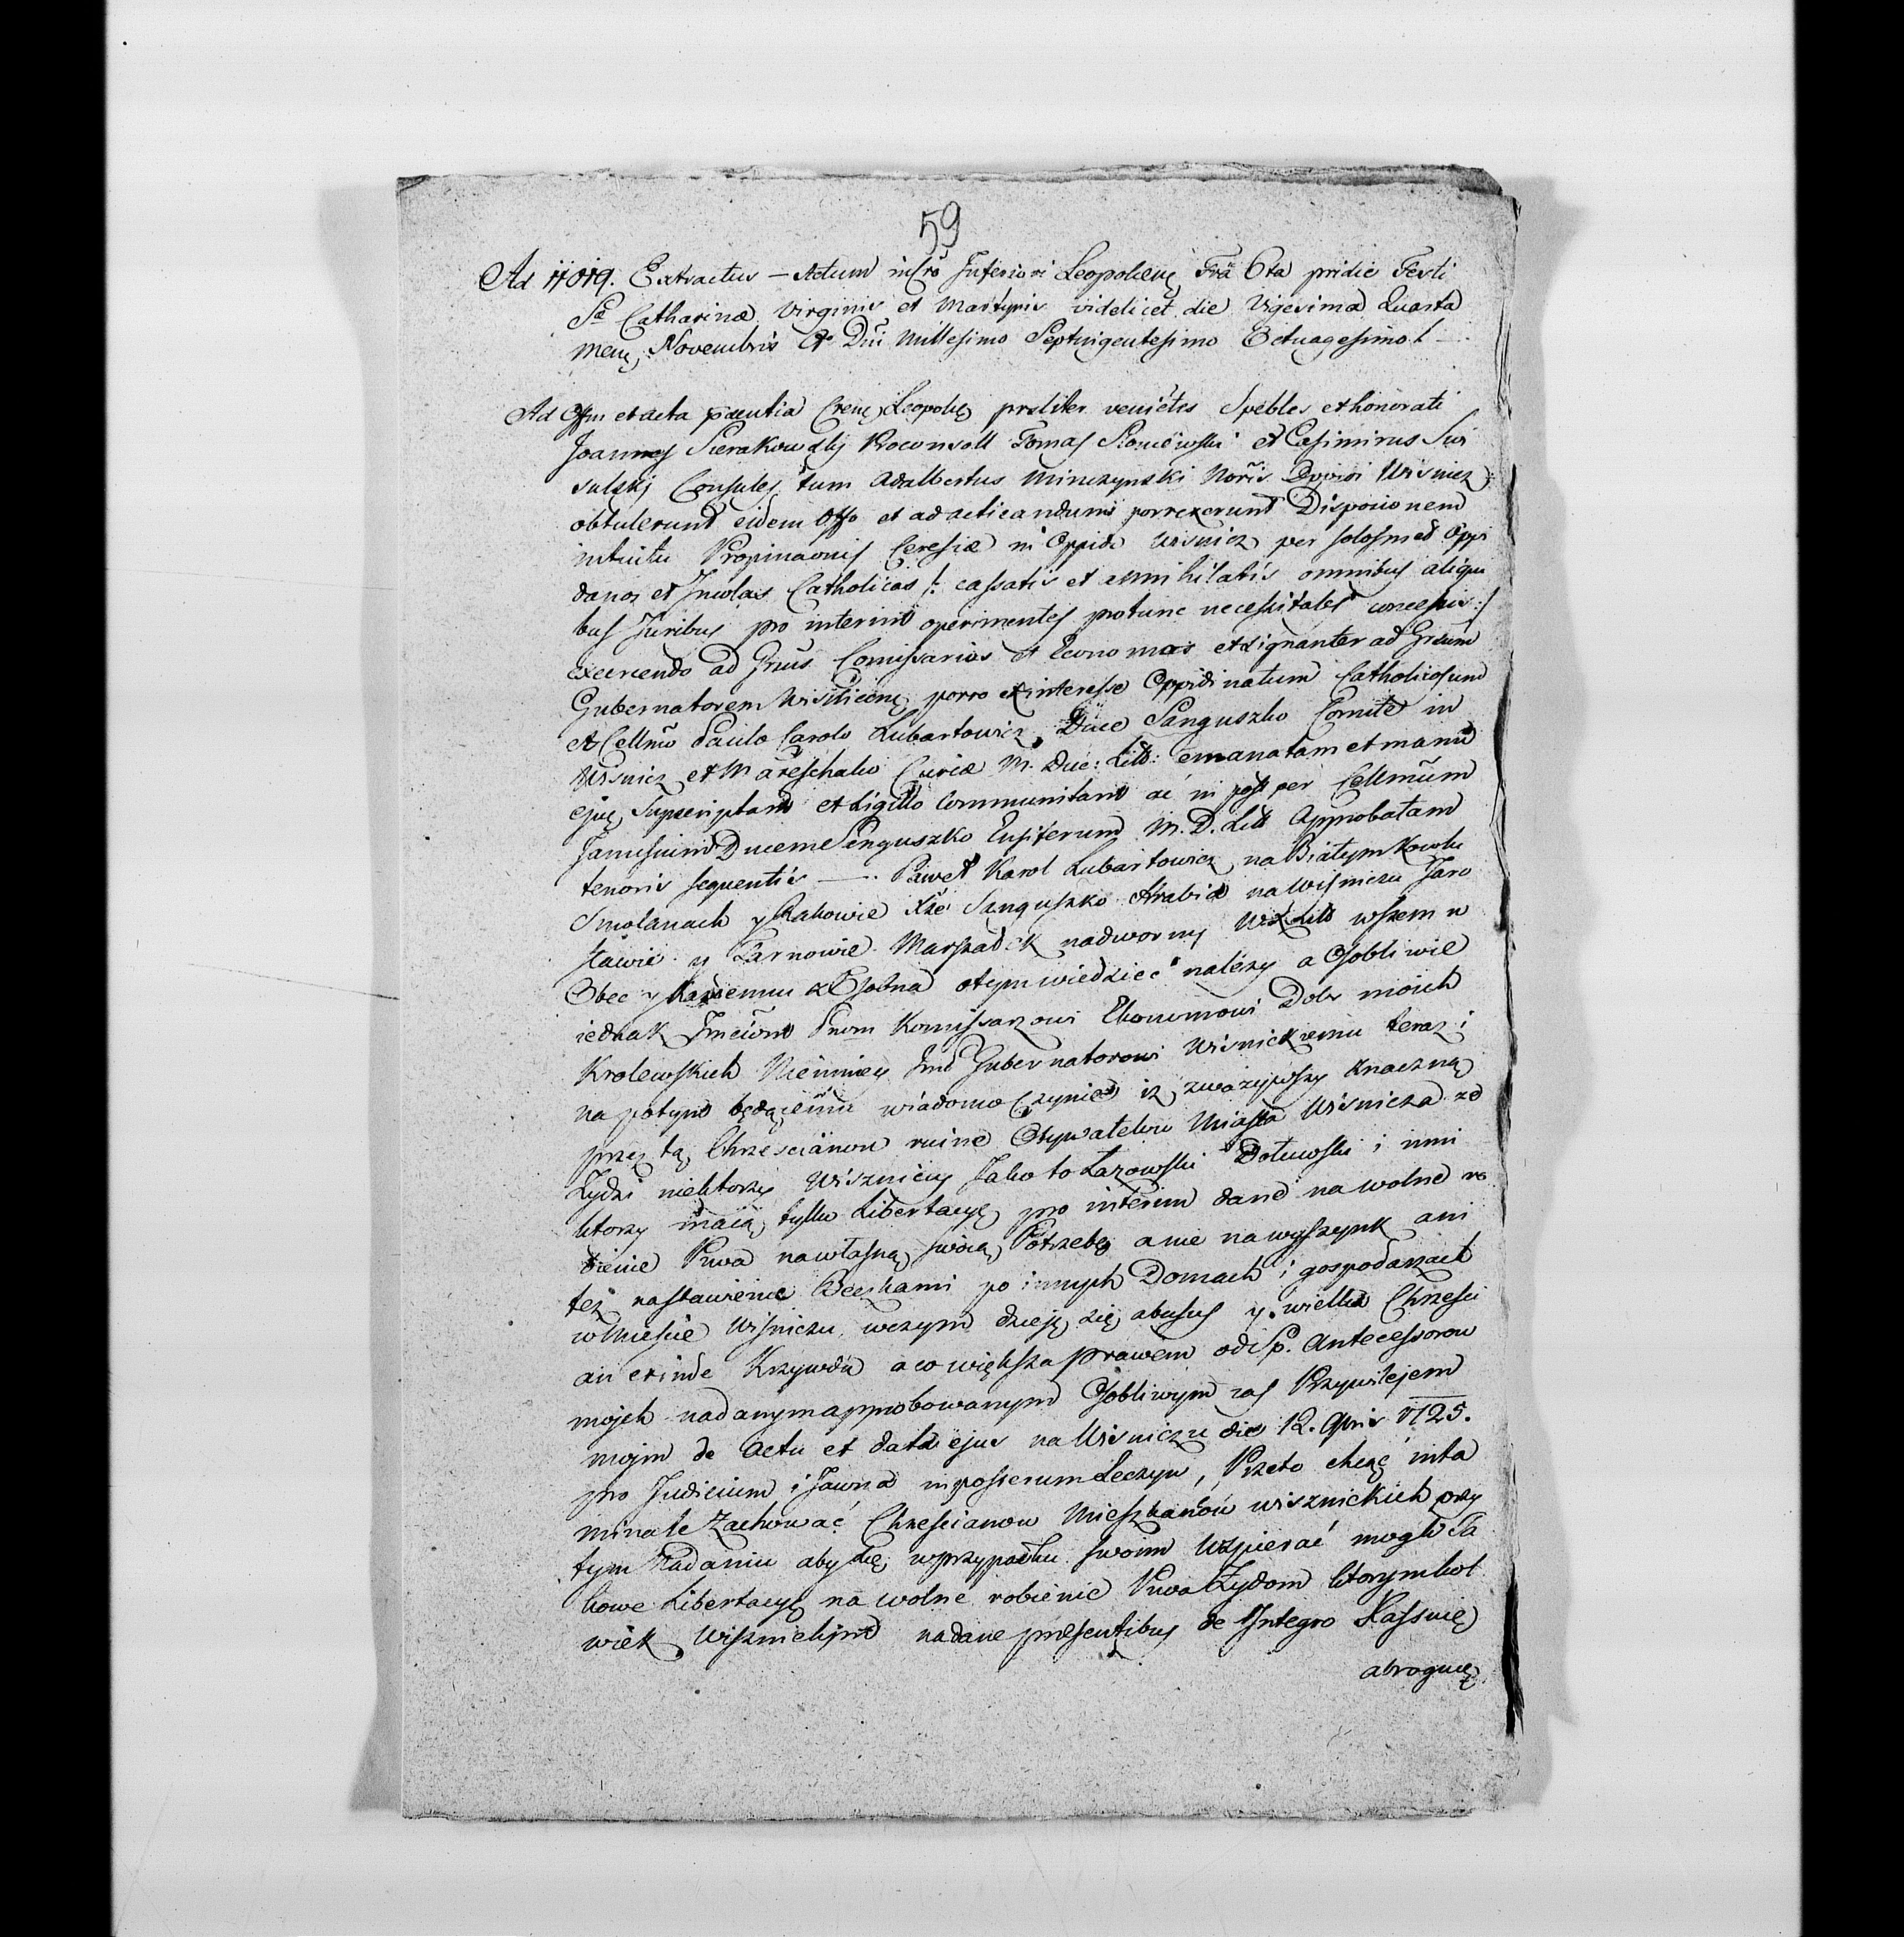 59
Ad 11019. Extractus – Actum in Cro Inferiori Leopoliens Fra 6ta pridie Festi
Sae Catharinae Virginis et Martyris videlicet die Vigesima Quarta
Mens Novembris Ao Dni Millesimo Septuigentesimo Octuagesimo
Ad Offm et acta pntia Crens Leopoliens prsliter venietes Spebles et honorati
Joannes Sierakowsky Proconsoll Tomas et Casimirus Sui
sulski Consules tum Adalbertus Minczynski Noris Oppidi Wisnicz
obtulerunt eidem Offo et ad acticandum porrexerunt Disposionem
intuitu Propinaonis Ceresiae in Oppido Wisnicz per solosmet Oppi
danos et Incolas Catholicos /: cassatis et annihilatis omnibus aliqui
bus Juribus pro interim operimentes protunc necessitates concessis :/
exercendo ad Gnus Comissarios et Economos et signanter ad Grsum
Gubernatorem Wisniciens porro ex interesse Oppidi natum Catholicorum
et Cellmo Paulo Carolo Lubartowicz Duce Sanguszko Comite in
Wisnicz et Mareschalco Curiae M. Duc: Litt: emanatam et manu
ejus Supscriptam et Sigillo Communitam ac in post per Cellmum
Janussium Ducem Senguszko Ensiferum M. D. Litt Approbatam
tenoris sequentis —. Paweł Karol Lubartowicz na Białymkowlu
Smolanach y Rakowie Xże Sanguszko Hrabia na Wiśniczu Jaro
sławie y Tarnowie Marszałek nadworny WXLitt wszem w
Obec y Kazdemu z Osobna otym wiedzieć należy a Osobliwie
iednak Jmciom Pnom Komissarzowi Ekonomowi Dobr moich
Krolewskich Niemniey Jmci Gubernatorowi Wiśnickiemu teraz i
na potym będącemu wiadomo Czynie iz zwazywszy znaczną
przez tą Chrzescianow ruine Obywatelow Miasta Wiśnicza ze
Zydzi niektorzy Wiszniccy Jako to Łazowski Dołuwski i inni
ktorzy maią tylko Libertacyę pro interim dane na wolne ro
bienie Piwa na własną swoią Potrzebę a nie na wyszynk ani
też nastawienie Beczkami po innych Domach i gospodarzach
w Miescie Wiśniczu, wczym dzieję się abusus y wielka Chrzesci
an exinde Krzywda a co większa prawem od S.P. Antecessorow
mojch nadanym approbowanym Osobliwym zas Przywilejem
mojm de Actu et data ejus na Wiśniczu die 12. Apris 1725.
pro Judicium i Jawna in posterum Leczyw, Przeto chcąc inta
minate Zachować Chrzescianow Mieszkanow wisznickich przy
tym Nadaniu aby się wprzypadku swoim Wspierać mogli Ta
kowe Libertacye na wolne robienie Piwa Zydom ktorymkol
wiek Wisznickim nadane praesentibus de Integro Kassuię
abroguię